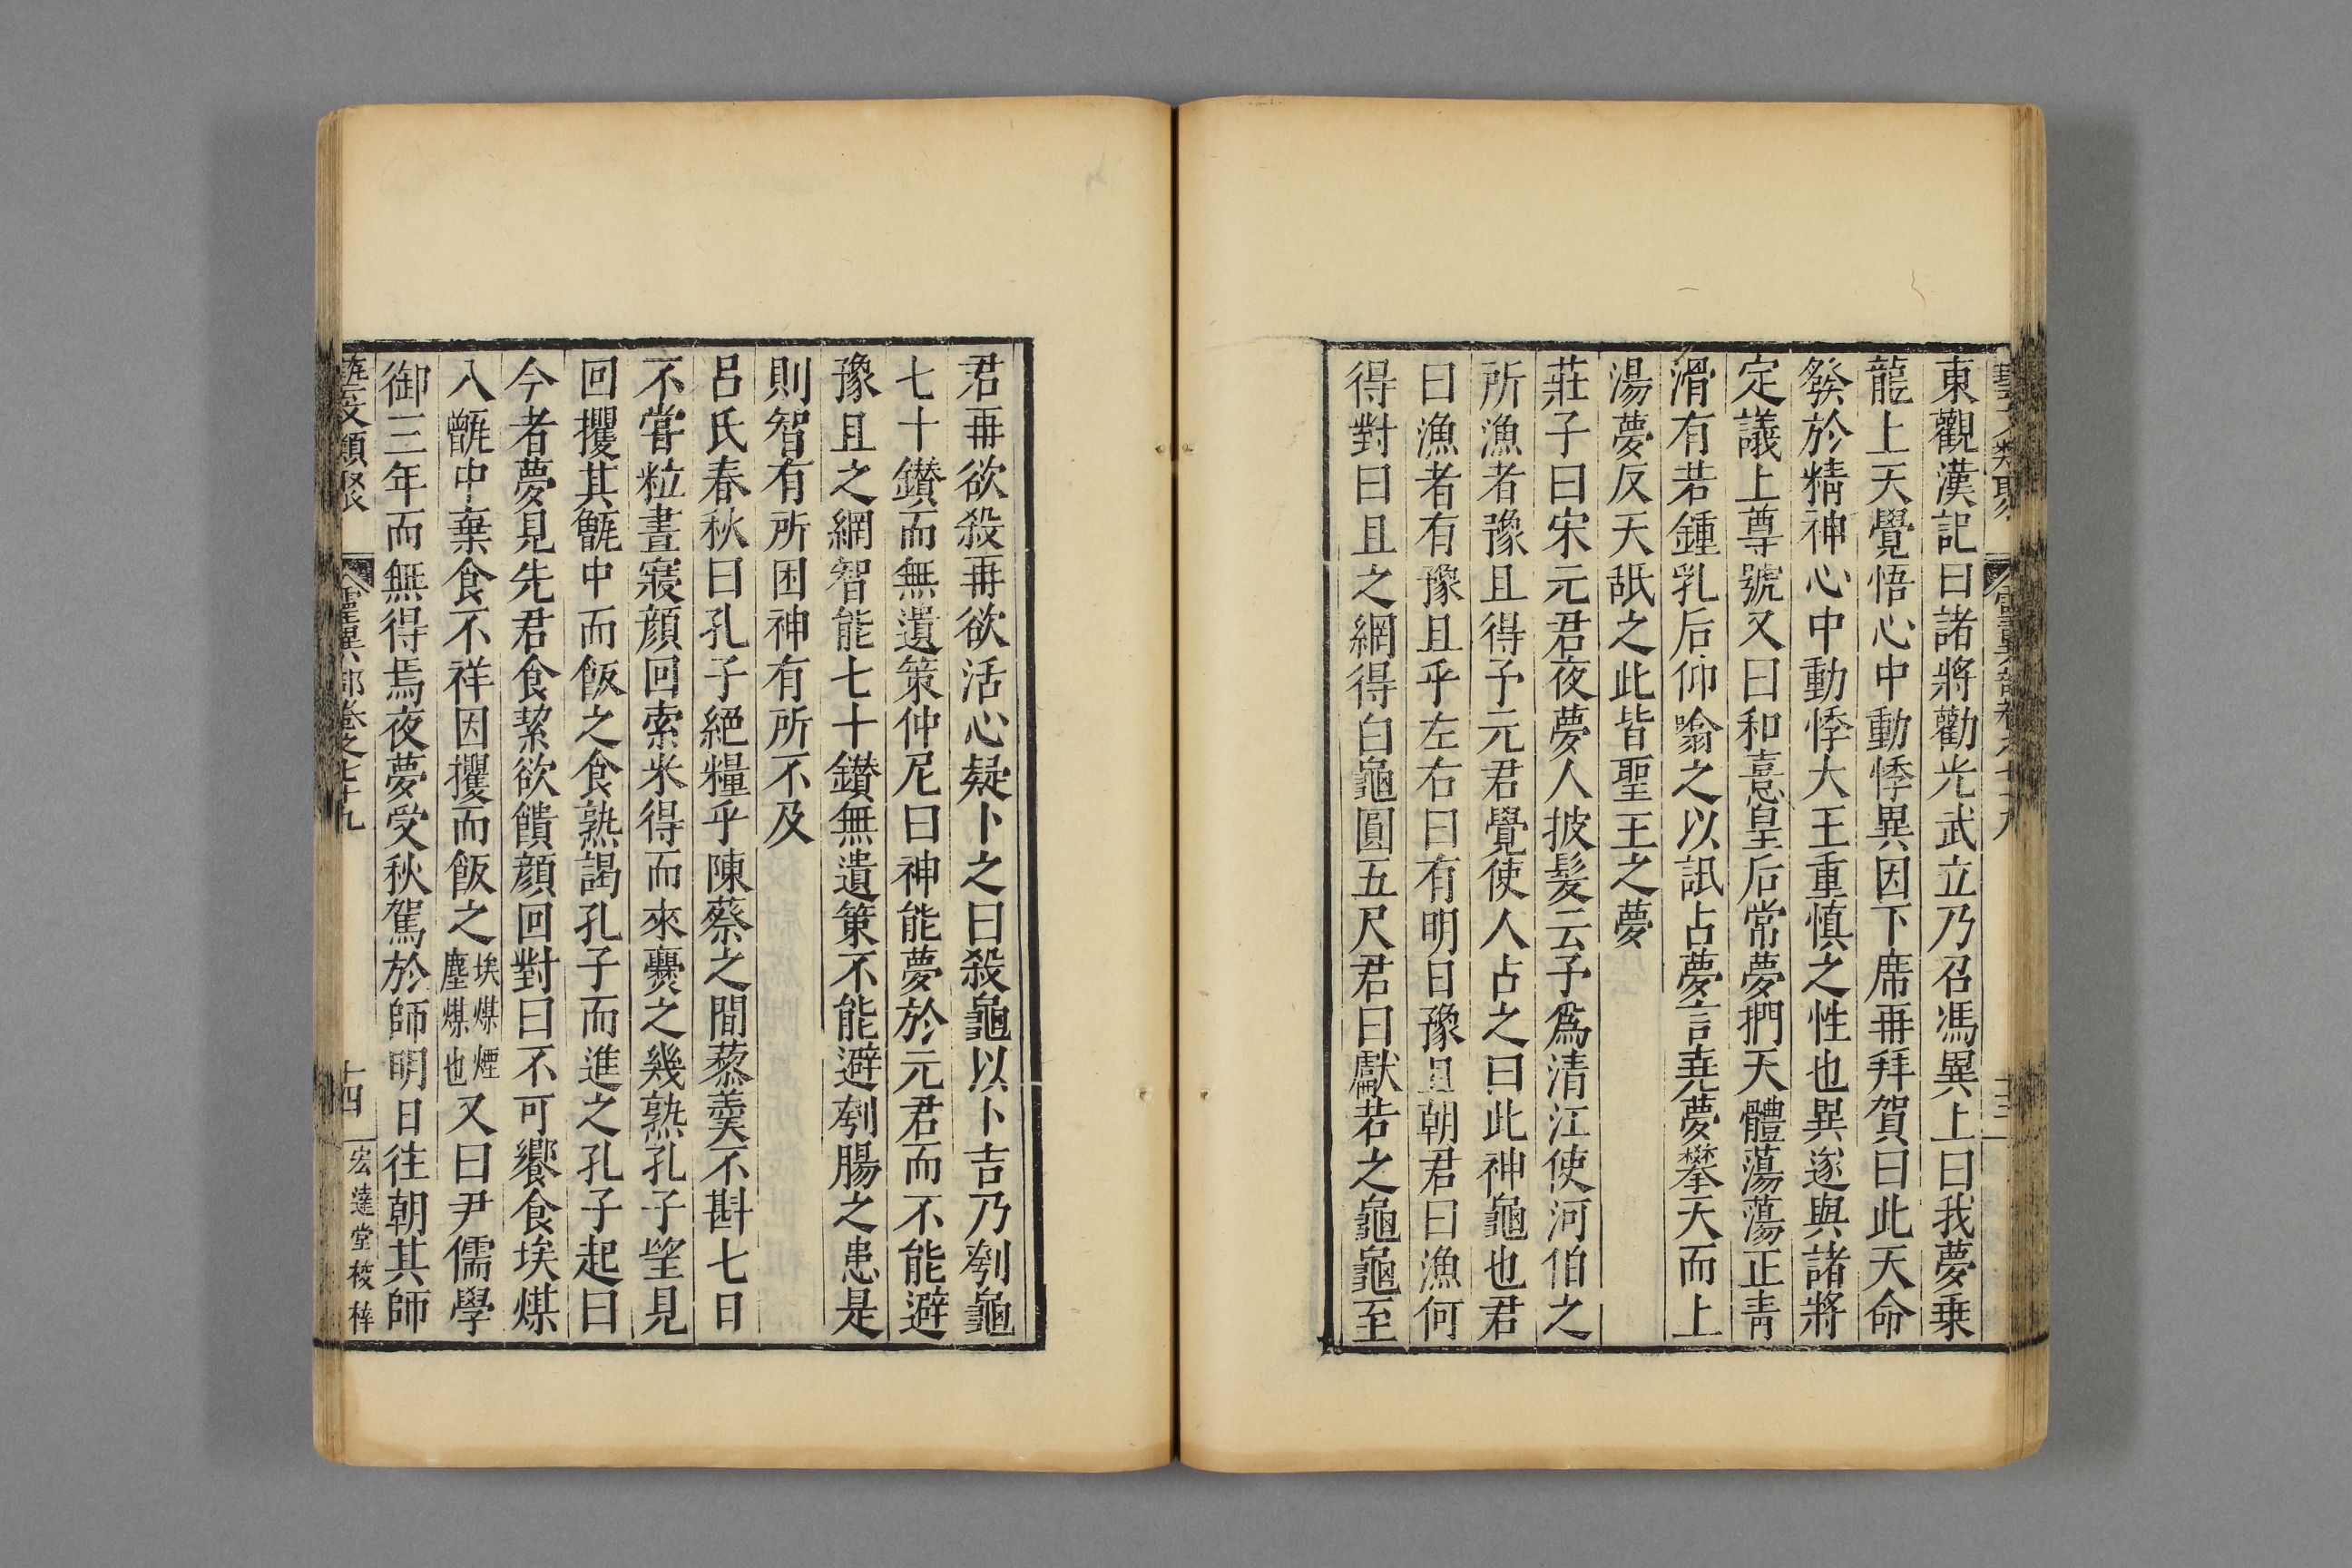 東觀漢記曰諸將勸光武立乃召馮異上曰我夢乗
龍上天覺悟心中動悸異因下席再拜賀曰此天命
發於精神心中動悸大王重慎之性也異遂與諸將
定議上尊號又曰和憙皇后常夢捫天體蕩蕩正青
滑有若鍾乳后仰噏之以訊占夢言堯夢攀天而上
湯夢反天舐之此皆聖王之夢
莊子曰宋元君夜夢人披髮云予爲清江使河伯之
所漁者豫且得予元君覺使人占之曰此神龜也君
曰漁者有豫且乎左右曰有明日豫且朝君曰漁何
得對曰且之網得白龜圓五尺君曰獻若之龜龜至
君再欲殺再欲活心疑卜之曰殺龜以卜吉乃刳龜
七十鑚而無遺策仲尼曰神能夢於元君而不能避
豫且之網智能七十鑚無遺策不能避刳腸之患是
則智有所困神有所不及
呂氏春秋曰孔子絕糧乎陳蔡之間藜羹不斟七日
不甞粒晝寢顔回索米得而來爨之幾熟孔子望見
回攫其甑中而飯之食熟謁孔子而進之孔子起曰
今者夢見先君食絜欲饋顔回對曰不可饗食埃煤
入甑中棄食不祥因攫而飯之埃煤煙塵煤也又曰尹儒學
御三年而無得焉夜夢受秋駕於師明日往朝其師
藝文類聚 靈異部卷之七十九 十四 宏達堂校梓